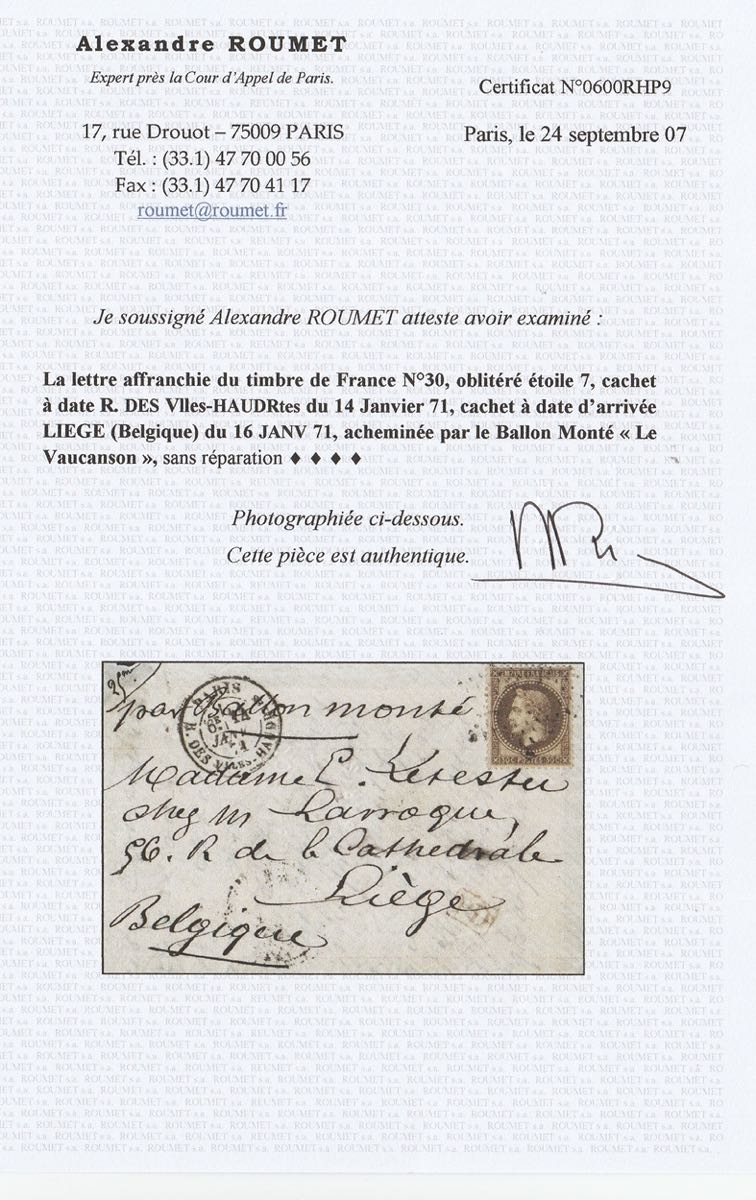 Alexandre ROUMET
Expert près la Cour d'Appel de Paris.
Certificat N°0600RHP9
17, rue Drouot – 75009 PARIS
Paris, le 24 septembre 07
Tél. : (33.1) 47 70 00 56
Fax : (33.1) 47 70 41 17
roumet@roumet.fr
Je soussigné Alexandre ROUMET atteste avoir examiné :
La lettre affranchie du timbre de France N°30, oblitéré étoile 7, cachet
à date R. DES Vlles-HAUDRtes du 14 Janvier 71, cachet à date d'arrivée
LIEGE (Belgique) du 16 JANV 71, acheminée par le Ballon Monté « Le
Vaucanson », sans réparation ♦ ♦ ♦ ♦
Photographiée ci-dessous.
Cette pièce est authentique.
par Ballon monté
PARIS
JANV
R. DES Vlles-HAUD
Madame
chez M Larroque,
56. R de la Cathedrale
Liège
Belgique